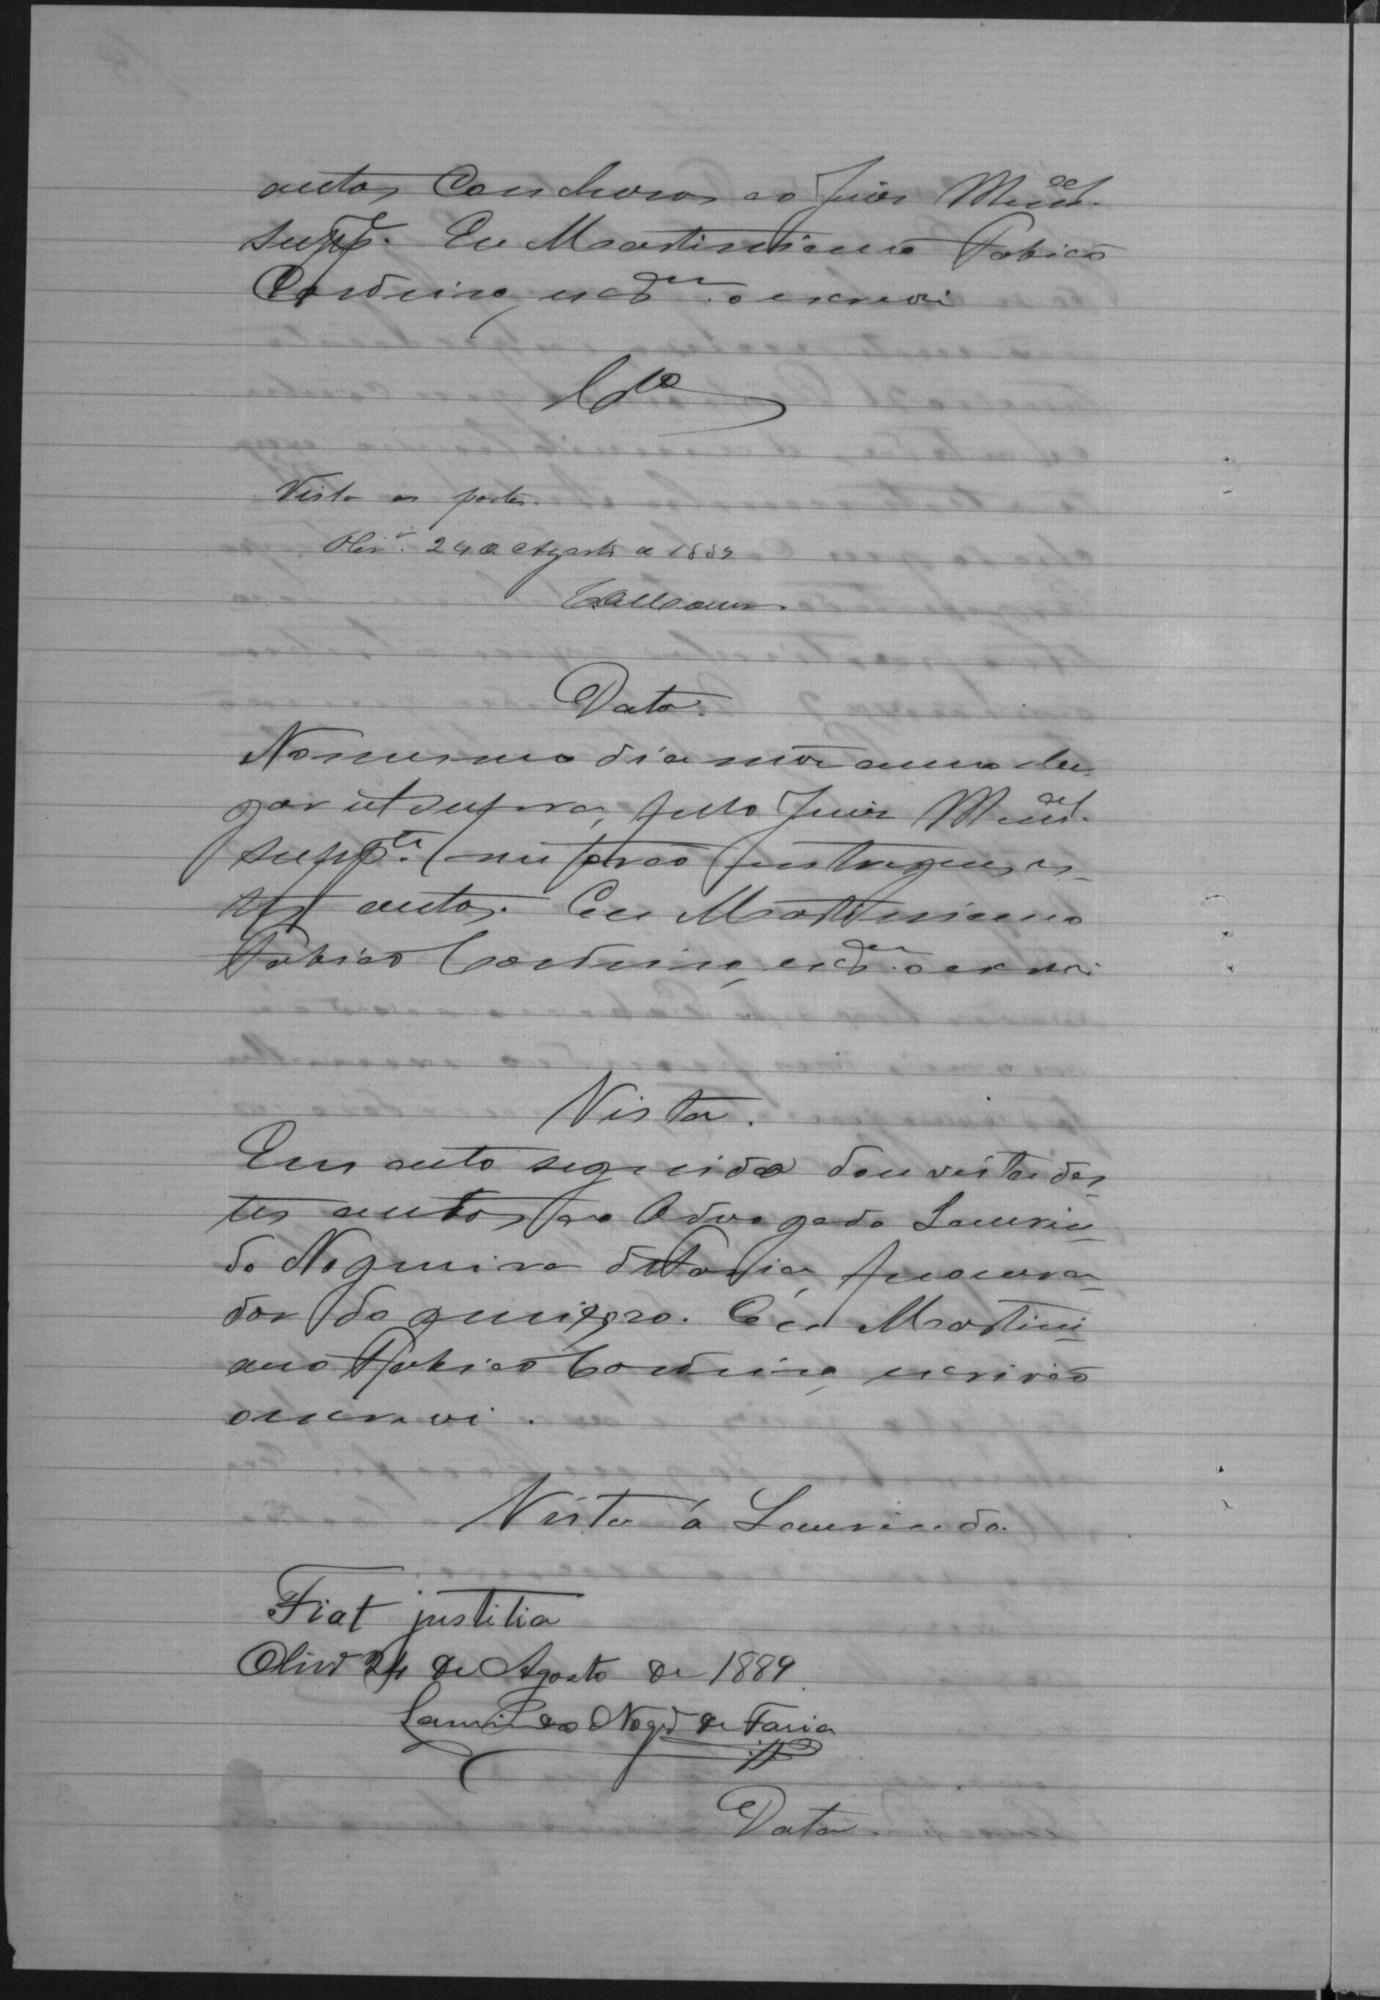 autos conclusos ao Juiz Mun.al
supp.te Eu Martiniano Fabião
Cordeiro, escr.am o escrevi
Cls.o
Vista as partes.
Oliv.a 24 de Agosto de 1889
Data.
No mesmo dia mez anno lu-
gar ut supra, pelo Juiz Mun.al
supp.te me forão entregues es-
tes autos. Eu Martiniano
Fabião Cordeiro, escr.am o escrevi
Vista.
Em acto seguido dou vista des-
tes autos ao Advogado Laurin-
do Nogueira de Faria, procura-
dor do queixoso. Eu Martini-
ano Fabião Cordeiro, escrivão
o escrevi.
Vista á Laurindo.
Fiat justitia
Oliv.a 24 de Agosto de 1889.
Laurindo Nog.a de Faria
Data.